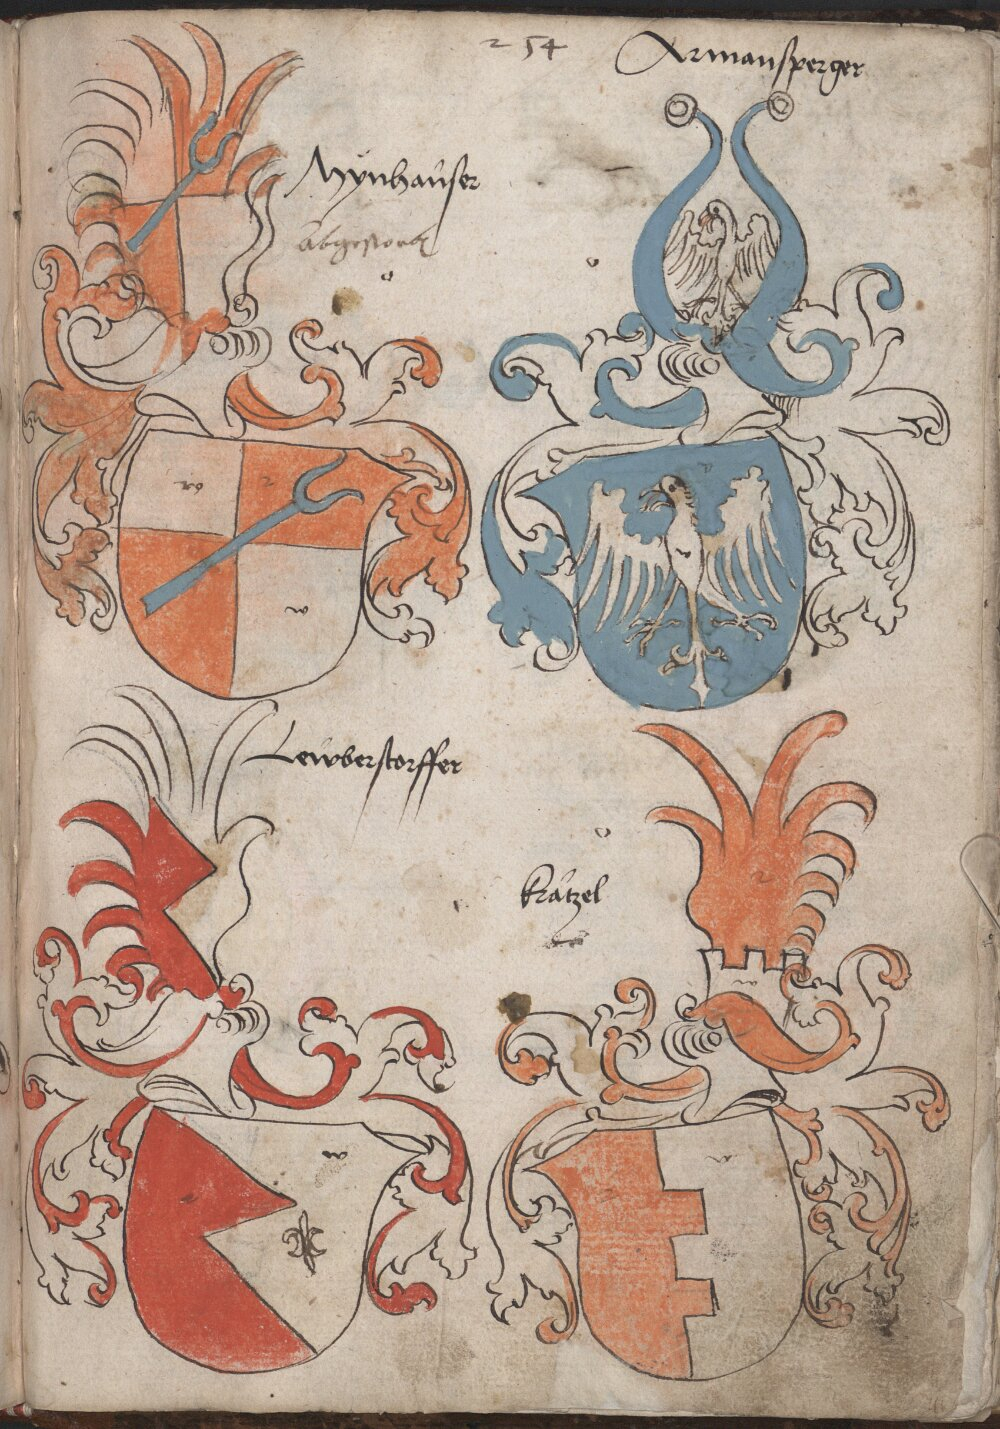 254
Armansperger
Mÿnhaüser
abgestorbn
w
2
w
Lewberstorffer
w
Krätzel
2
w
w